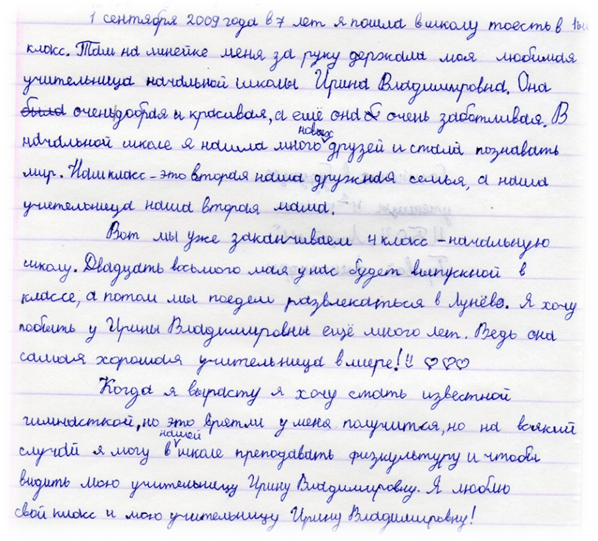 1 сентября 2009 года в 7 лет я пошла в школу тоесть в 1ый
класс. Там на линейке меня за руку держала моя любимая
учительница начальной школы Ирина Владимировна. Она
была очень добрая и красивая, а ещё она очень заботливая. В
начальной школе я нашла много новых друзей и стала познавать
мир. Наш класс - это вторая наша дружная семья, а наша
учительница наша вторая мама.
Вот мы уже заканчиваем 4 класс - начальную
школу. Двадцать восьмого мая у нас будет выпускной в
классе, а потом мы поедем развлекаться в Лунёво. Я хочу
побыть у Ирины Владимировны ещё много лет. Ведь она
самая хорошая учительница в мире!!! ♡♡♡
Когда я вырасту я хочу стать известной
гимнасткой, но это врятли у меня получится, но на всякий
случай я могу в нашей школе преподавать физкультуру и чтобы
видить мою учительницу Ирину Владимировну. Я люблю
свой класс и мою учительницу Ирину Владимировну!